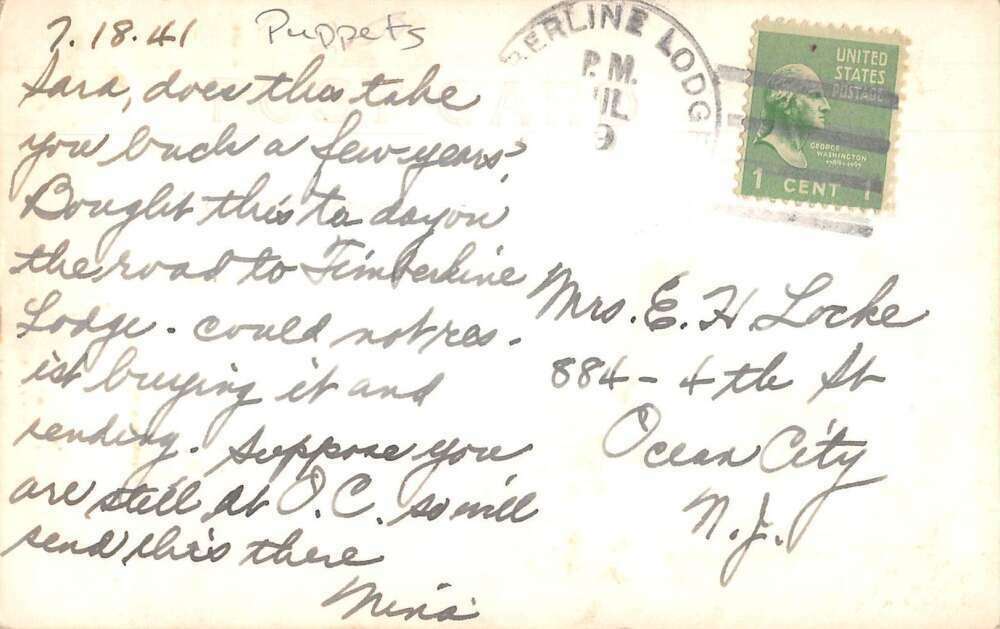 7.18.41 Puppets
Sara, does this take
you back a few years?
Bought this to day on
the road to Timberline
Lodge. could not res-
ist buying it and
sending. Suppose you
are still at O.C. so will
send this there
Mina
POST CARD
BERLINE LODGE
P.M.
JUL
9
UNITED
STATES
POSTAGE
GEORGE
WASHINGTON
1 CENT 1
Mrs. E. H. Locke
884 - 4th St
Ocean City
N.J.